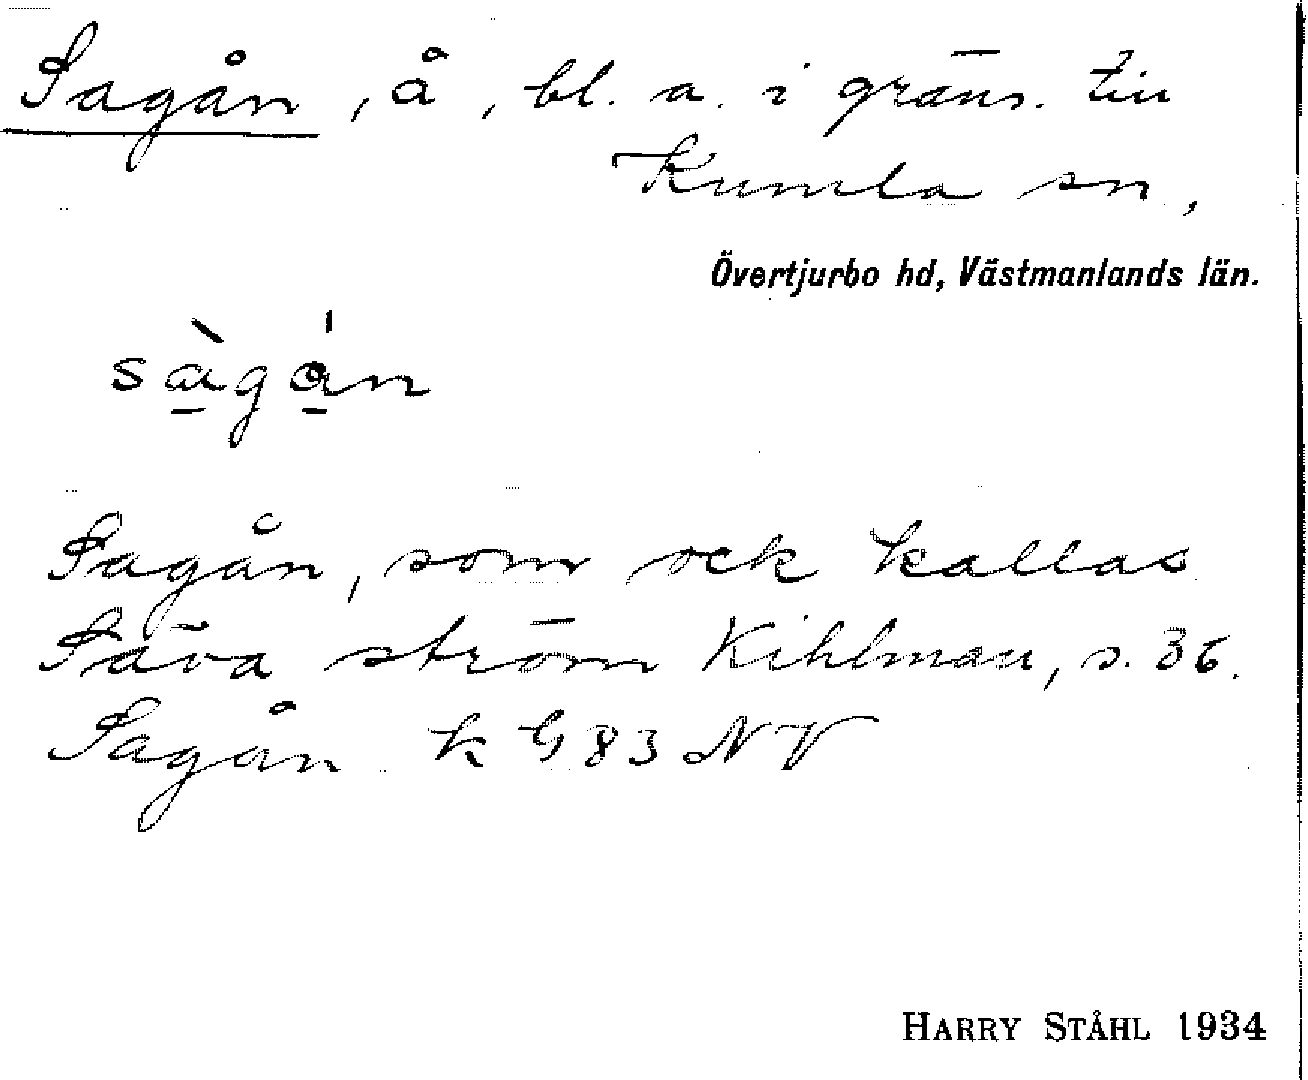 Sagån, å, bl. a. i gräns. till
Kumla sn,
Övertjurbo hd, Västmanlands län.
sàgån
Sagån, som ock kallas
Säva ström Kihlman, s. 36.
Sagån k G 83 NV
HARRY STÅHL 1934